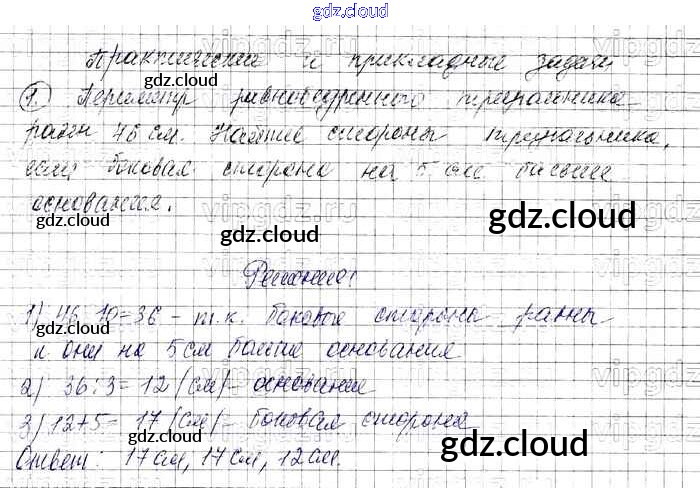 gdz.cloud
Практические и прикладные задачи
1. Периметр равнобедренного треугольника
равен 46 см. Найдите стороны треугольника,
если боковая сторона на 5 см больше
основания.
Решение:
1) 46-10=36 - т.к. боковые стороны равны
и они на 5 см больше основания
2) 36:3=12 (см) - основание
3) 12+5=17 (см) - боковая сторона
Ответ: 17 см, 17 см, 12 см.
gdz.cloud
gdz.cloud
gdz.cloud
gdz.cloud
gdz.cloud
gdz.cloud
gdz.cloud
gdz.cloud
gdz.cloud
vipgdz.ru